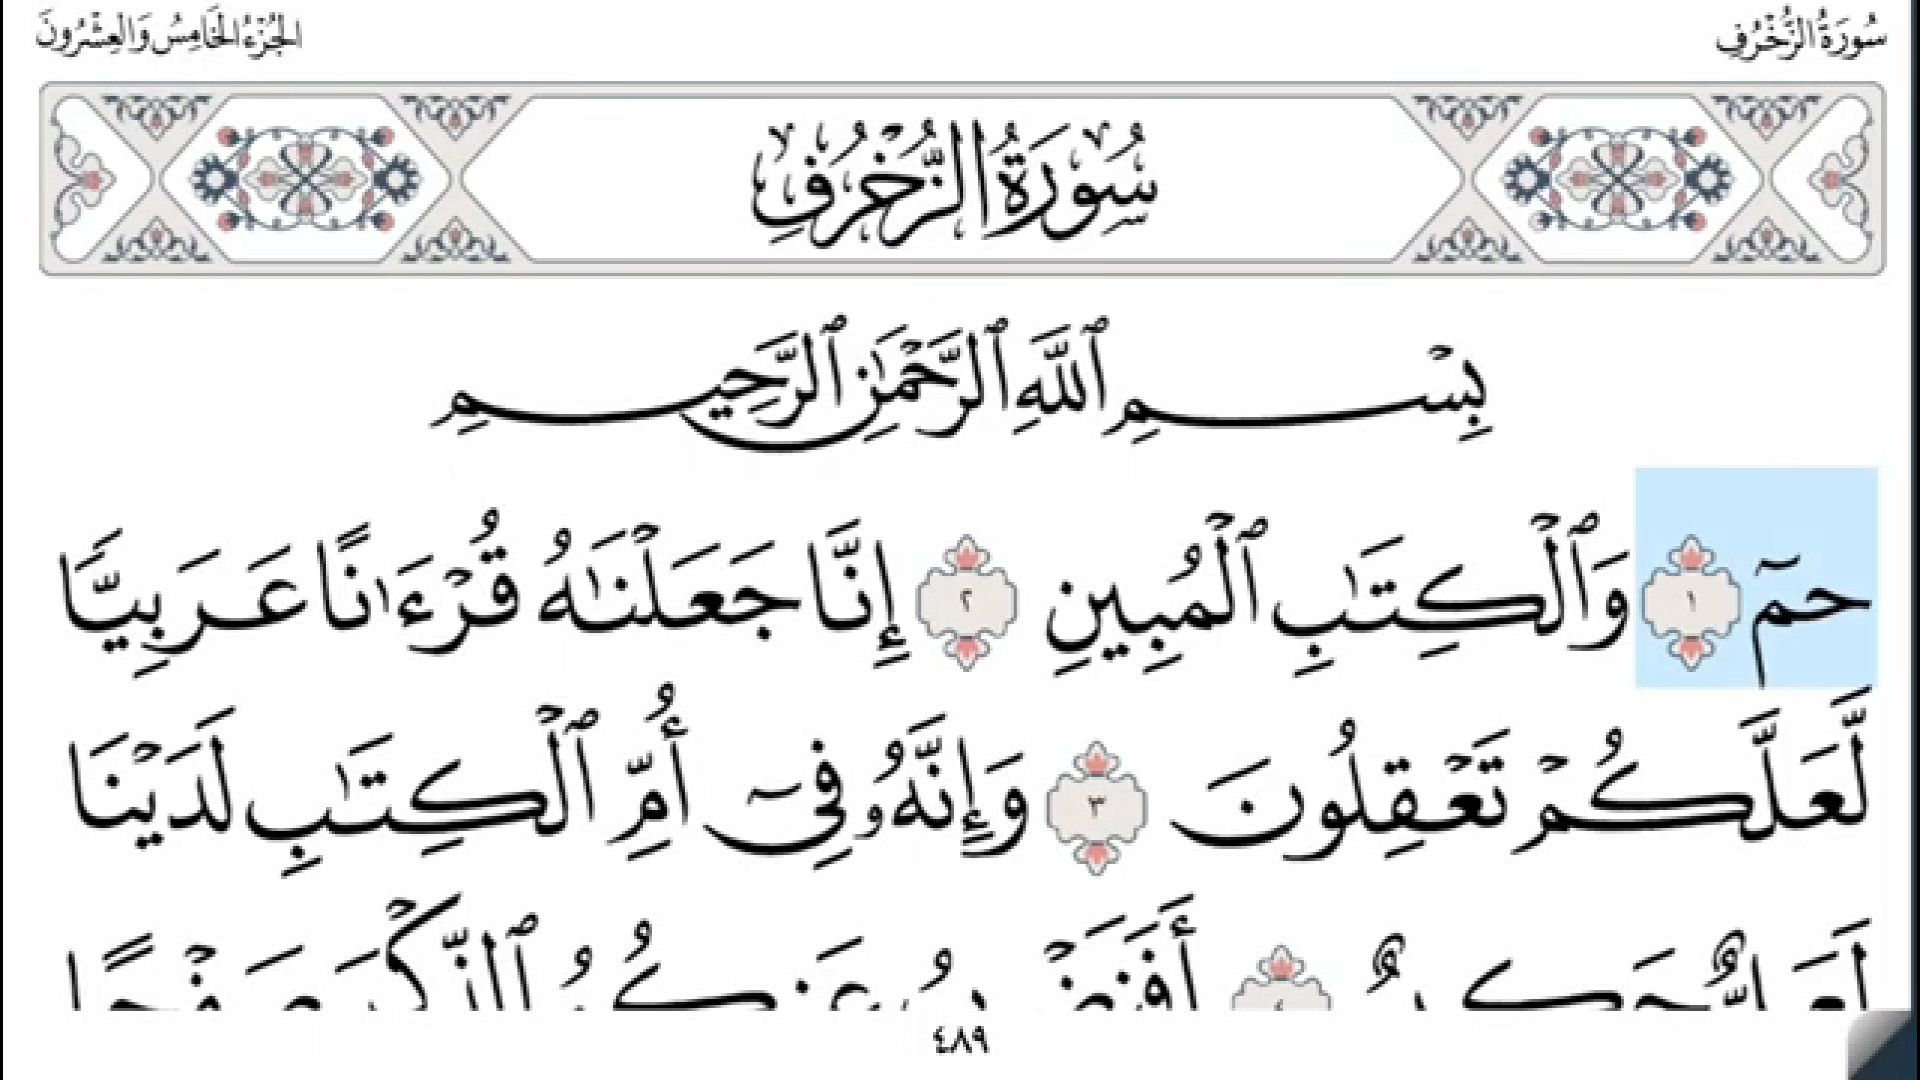 سُورَةُ الزُّخْرُفِ
الجُزْءُ الخَامِسُ وَالْعِشْرُونَ
سُورَةُ الزُّخْرُفِ
بِسْمِ ٱللَّهِ ٱلرَّحْمَٰنِ ٱلرَّحِيمِ
حمٓ ١ وَٱلْكِتَٰبِ ٱلْمُبِينِ ٢ إِنَّا جَعَلْنَٰهُ قُرْءَٰنًا عَرَبِيًّا
لَّعَلَّكُمْ تَعْقِلُونَ ٣ وَإِنَّهُۥ فِىٓ أُمِّ ٱلْكِتَٰبِ لَدَيْنَا
لَعَلِىٌّ حَكِيمٌ ٤ أَفَنَضْرِبُ عَنكُمُ ٱلذِّكْرَ صَفْحًا
٤٨٩